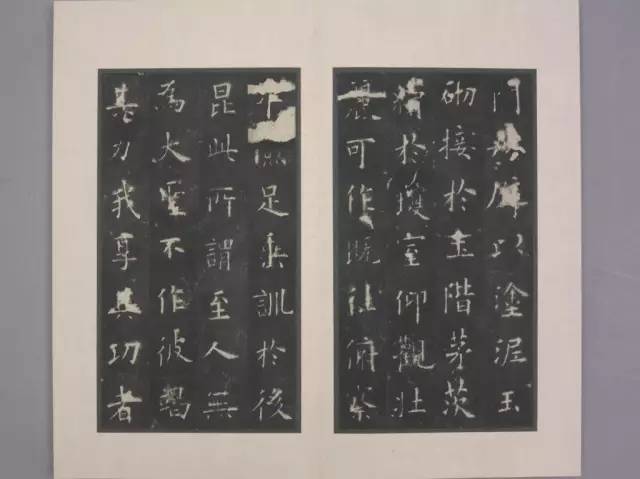 門粉壁以塗泥玉
砌接於土階茅茨
續於瓊室仰觀壯
麗可作既往俯察
卑儉足垂訓於後
昆此所謂至人無
為大聖不作彼竭
其力我享其功者